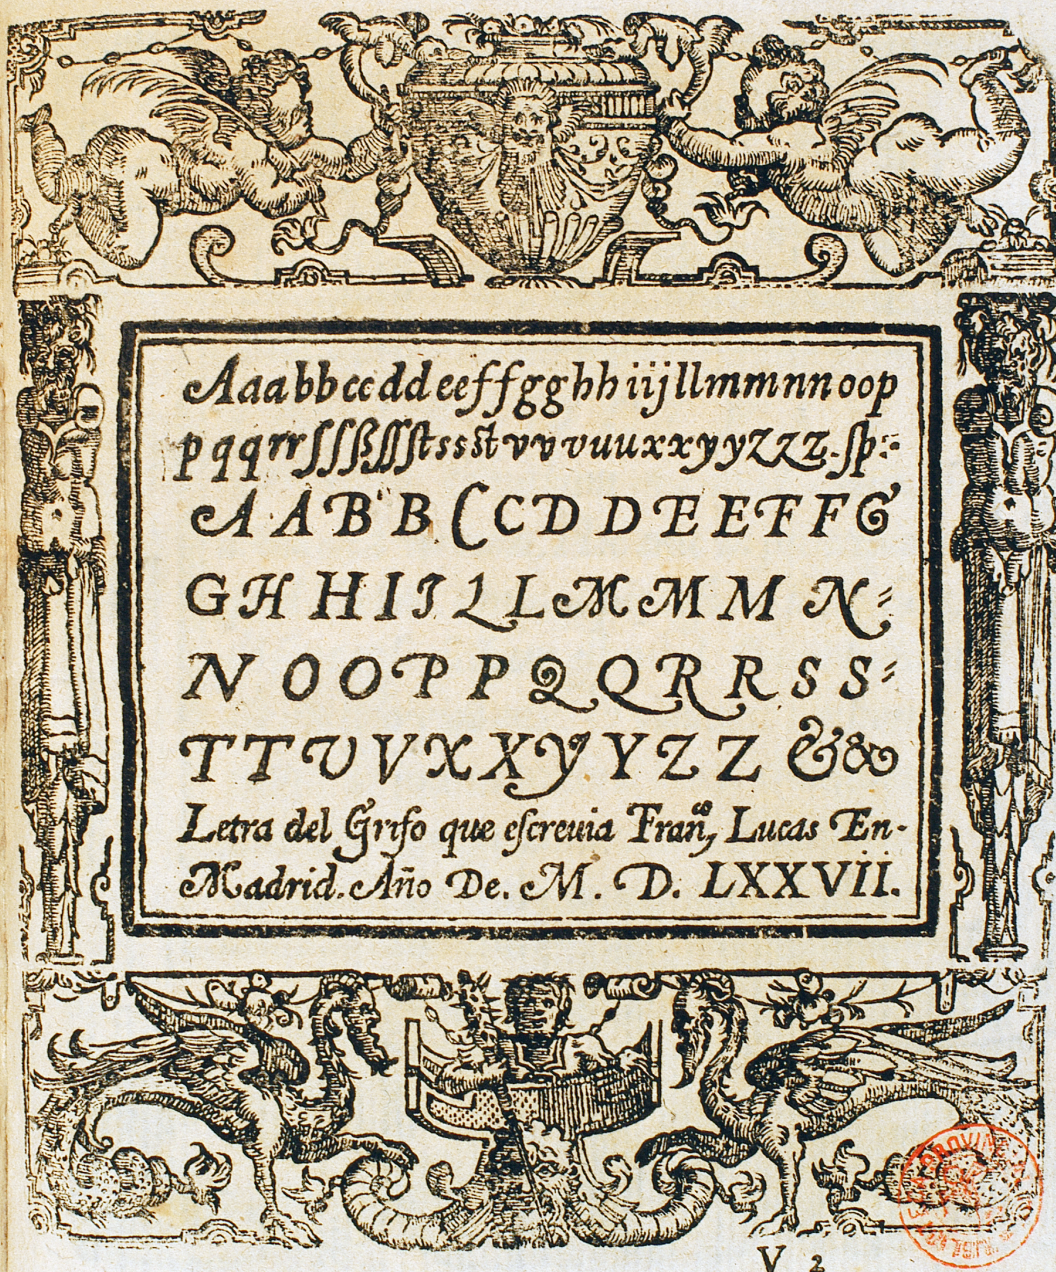 Aaabbccddeeffgghhiijllmmnnoop
pqqrrſſſßſſſtssstvvvuuuxxyyzzz.ſp:
AABBCCDDEEFFG
GHHIIJLLMMMN
NOOPPQQRRSS
TTUVXXYYZZ&&
Letra del Grifo que eſcreuia Franco, Lucas En-
Madrid. Año De. M. D. LXXVII.
V 2